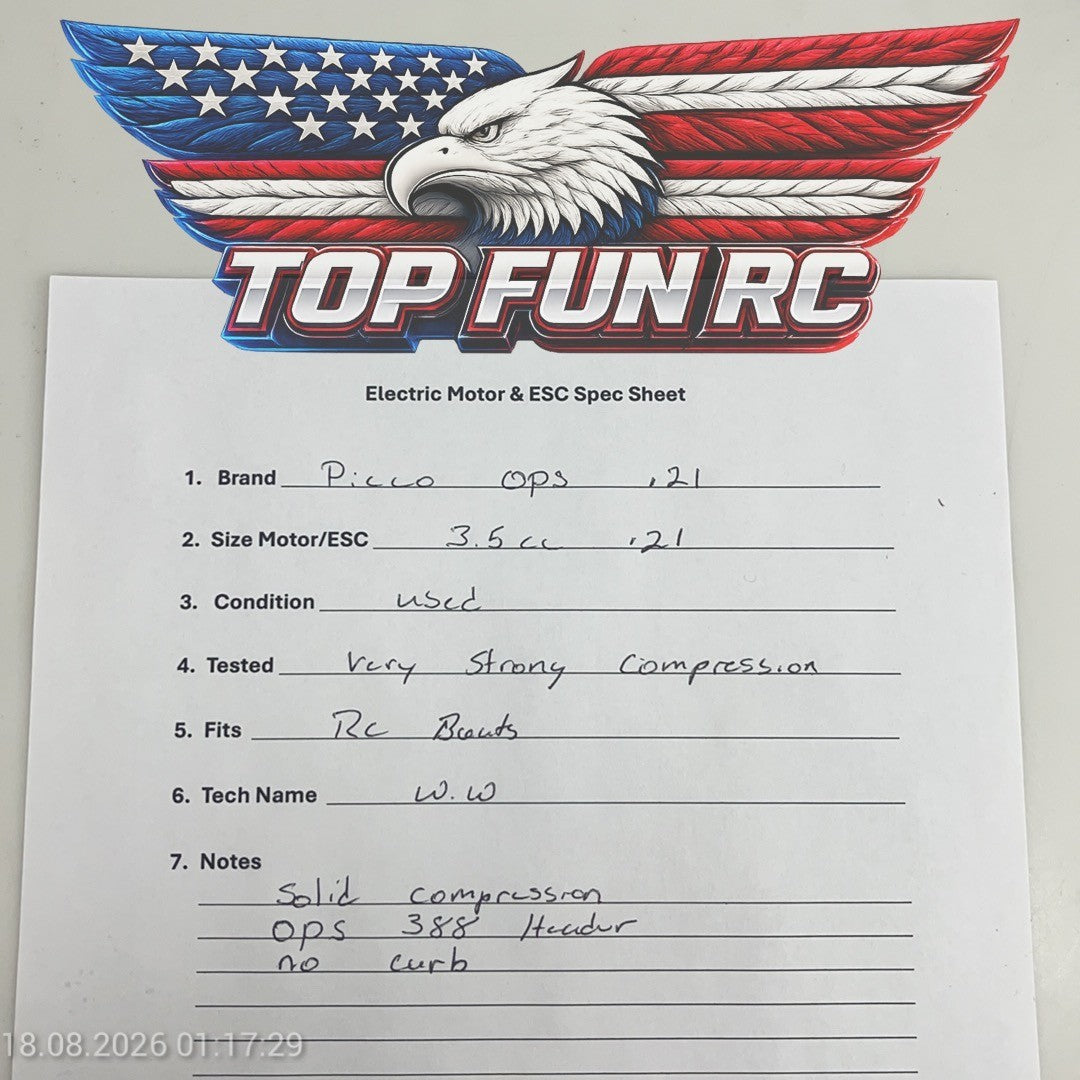 TOP FUN RC
Electric Motor & ESC Spec Sheet
1. Brand Picco OPS .21
2. Size Motor/ESC 3.5 cc .21
3. Condition used
4. Tested Very Strong Compression
5. Fits Rc Boats
6. Tech Name W.W
7. Notes
Solid compression
OPS 388 Header
no curb
18.08.2026 01:17:29